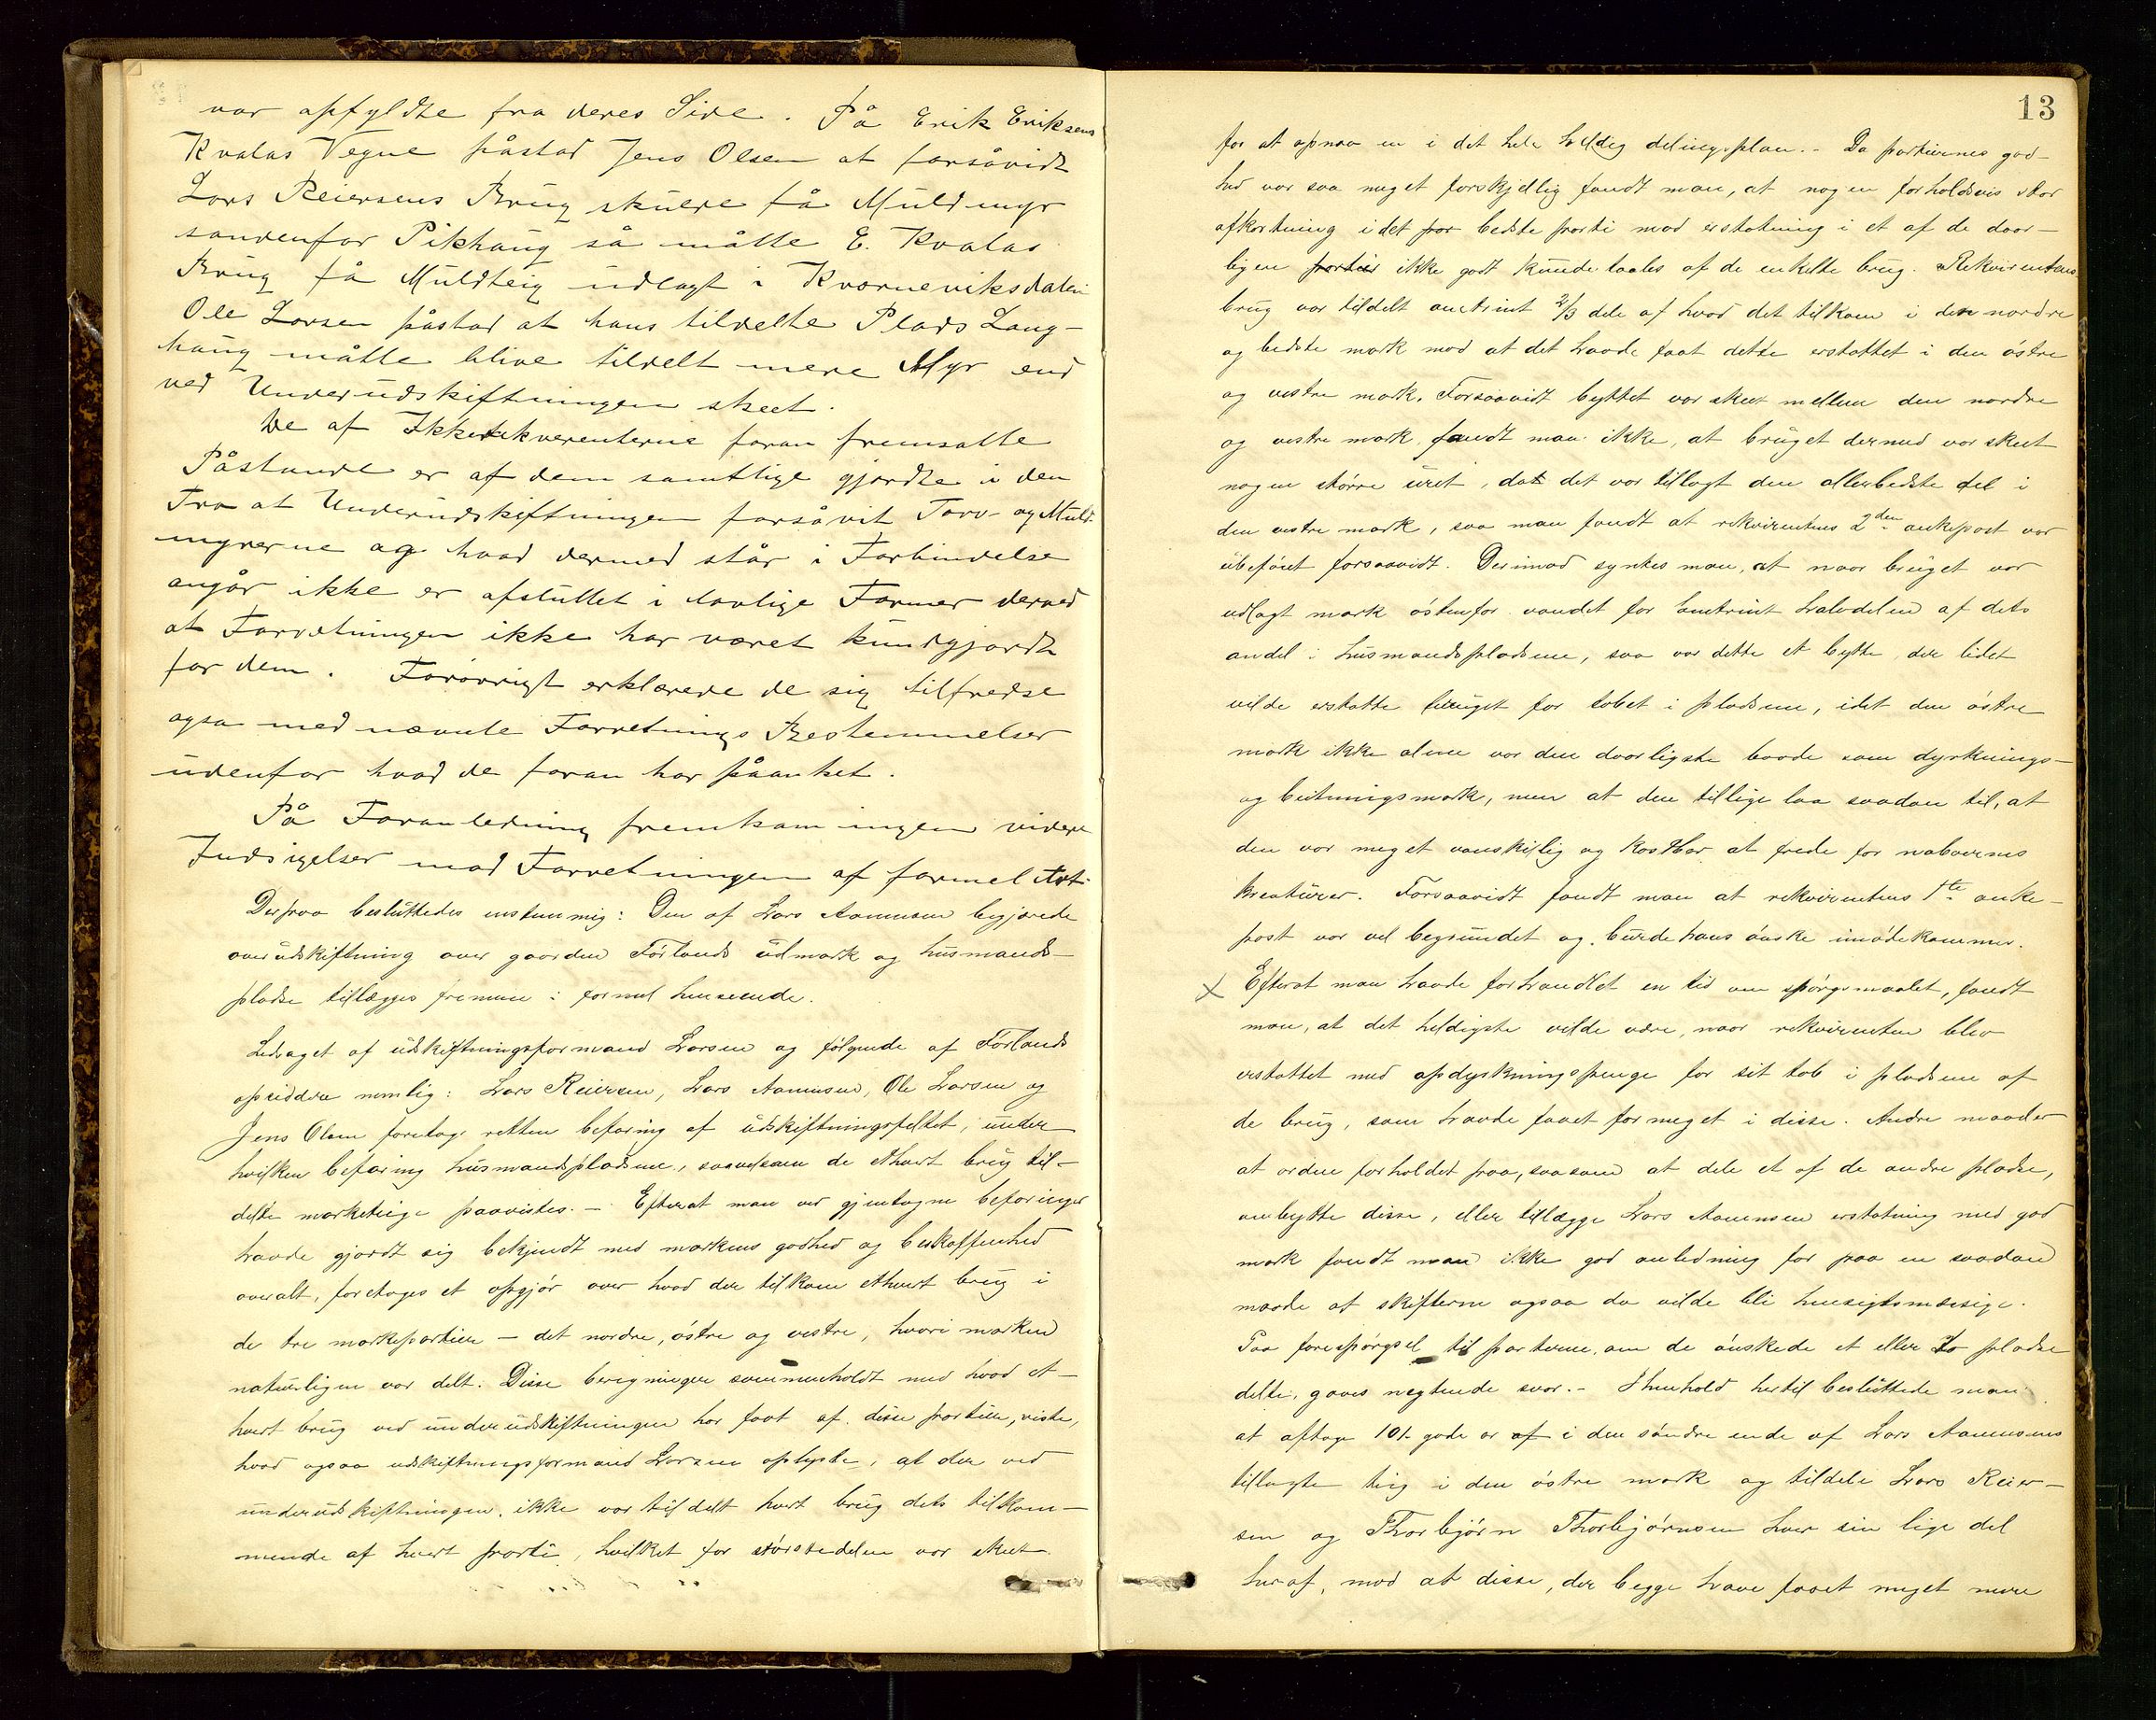 var opfyldte fra deres Side. På Erik Eriksens
Kvalas Vegne påstod Jens Olsen at forsåvidt
Lars Reiersens Brug skulde få Muldmyr
søndenfor Pikhaug så måtte E. Kvalas
Brug få Muldteig udlagt i Kvorneviksdalen
Ole Larsen påstod at hans tildelte Plads Lang-
haug måtte blive tildelt mere Myr end
ved Underudskiftningen skeet.
De af Ikkerekverenterne foran fremsatte
Påstande er af dem samtlige gjordte i den
Tro at Underudskiftningen forsåvit Torv- og Muld-
myrerne og hvad dermed står i Forbindelse
angår ikke er afsluttet i lovlige Former derved
at Forretningen ikke har været kundgjordt
for dem. Forøvrigt erklærede de sig tilfredse
ogsa med nævnte Forretnings Bestemmelser
udenfor hvad de foran har påanket.
På Foranledning fremkom ingen videre
Indsigelser mod Forretningen af formel Art.
Derpaa besluttedes enstemmig: Den af Lars Aamunsen begjærede
overudskiftning over gaarden Førlands udmark og husmands-
pladse tillægges fremme i formel henseende.
Ledsaget af udskiftningsformand Larsen og følgende af Førlands
opsiddere nemlig: Lars Reiersen, Lars Aamunsen, Ole Larsen og
Jens Olsen foretoges retten befaring af udskiftningsfeltet, under
hvilken befaring husmandspladsene, saavelsom de ethvert brug til-
delte marketeige paavistes. - Efterat man ved gjentagne befaringer
havde gjordt sig bekjendt med markens godhed og beskaffenhed
overalt, foretoges et opgjør over hvad der tilkom ethvert brug i
de tre markepartier - det nordre, østre og vestre, hvori marken
naturligen var delt. Disse beregninger sammenholdt med hvad et-
hvert brug ved underudskiftningen har faat af disse partier, viste,
hvad ogsaa udskiftningsformand Larsen oplyste, at der ved
underudskiftningen ikke var tildelt hvert brug dets tilkom-
mende af hvert parti, hvilket for størstedelen var skeet
13
for at opnaa en i det hele heldig delingsplan. - Da partiernes god-
hed var saa meget forskjellig fandt man, at nogen forholdsvis stor
afkortning i det bedste parti mod erstatning i et af de daar-
ligere partier ikke godt kunde taales af de enkelte brug. Rekvirentens
brug var tildelt omtrint 2/3 dele af hvad det tilkom i den nordre
og bedste mark mod at det havde faat dette erstattet i den østre
og vestre mark. Forsaavidt byttet var skeet mellem den nordre
og vestre mark, fandt man ikke, at bruget dermed var skeet
nogen større uret, da det var tillagt den allerbedste del i
den vestre mark, saa man fandt at rekvirentens 2den ankepost var
ubeføiet forsaavidt. Derimod syntes man, at naar bruget var
udlagt mark østenfor vandet for omtrint halvdelen af dets
andel i husmandspladsene, saa var dette et bytte der lidet
vilde erstatte bruget for tabet i pladsene, idet den østre
mark ikke alene var den daarligste baade som dyrknings-
og beitningsmark, men at den tillige laa saadan til, at
den var meget vanskelig og kostbar at frede for naboernes
kreaturer. Forsaavidt fandt man at rekvirentens 1te anke-
post var vel begrundet og burde hans ønske imødekommes.
x Efterat man havde forhandlet en tid om spørgsmaalet, fandt
man, at det heldigste vilde være, naar rekvirenten blev
erstattet med opdyrkningspenge for sit tab i pladsene af
de brug, som havde faaet for meget i disse. Andre maader
at ordne forholdet paa, saasom at dele et af de andre pladse,
ombytte disse, eller tillægge Lars Aamunsen erstatning med god
mark fandt man ikke god anledning for paa en saadan
maade at skifterne ogsaa da vilde bli hensigtsmæssige.
Paa forespørgsel til parterne, om de ønskede et eller to pladse
delte, gaves nægtende svar. - I henhold hertil besluttede man
at aftage 101 gode ar i den søndre ende af Lars Aamunsens
tillagte teig i den østre mark og tildele Lars Reier-
sen og Thorbjørn Thorbjørnsen hver sin lige del
heraf, mod at disse, der begge have faaet meget mere